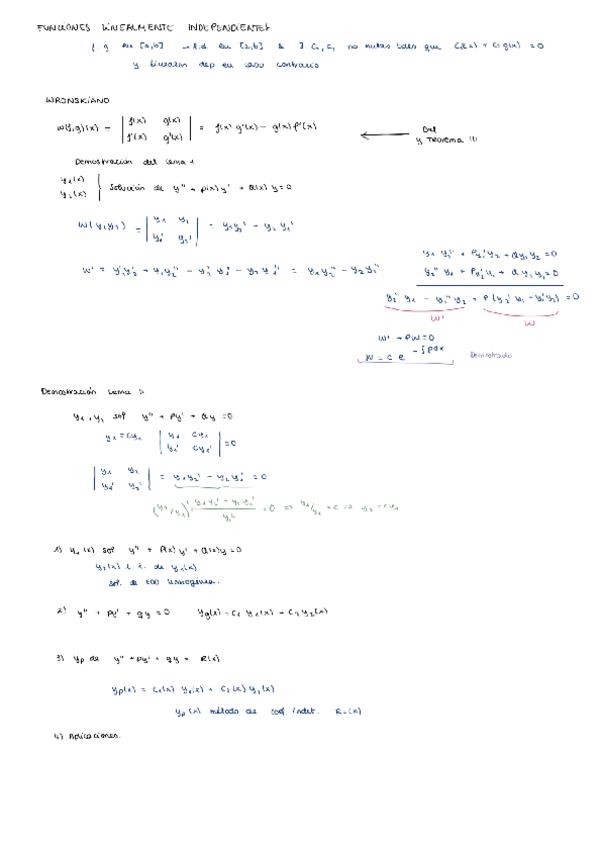 FUNCIONES LINEALMENTE INDEPENDIENTES
f, g en [a,b] l.d. en [a,b] & ∃ C₁, C₂ no nulas tales que C₁f(x) + C₂g(x) = 0
y linealm dep en caso contrario
WRONSKIANO
W(f,g)(x) = | f(x) g(x) | = f(x) g'(x) - g(x) f'(x)
| f'(x) g'(x) |
←
y Teorema
Demostración del Lema 1
y₁(x)
y₂(x) } solución de y'' + p(x) y' + Q(x) y = 0
W(y₁y₂) = | y₁ y₂ | = y₁y₂' - y₂ y₁'
| y₁' y₂' |
W' = y₁'y₂' + y₁y₂'' - y₂' y₁' - y₂ y₁'' = y₁y₂'' - y₂y₁''
y₁ y₂'' + Py₂'y₁ + Qy₁y₂ = 0
y₂'' y₁ - y₁'' y₂ + P(y₂' y₁ - y₁'y₂) = 0
W' W
W' + PW = 0
W = c e^{-∫pdx} Demostrado
Demostración Lema 2
y₁, y₂ sol y'' + Py' + Qy = 0
| y₁ cy₁ |
| y₁' cy₁' | = 0
| y₁ y₂ |
| y₁' y₂' | = y₁y₂' - y₂y₁' = 0
(y₂/y₁)' = (y₁y₂' - y₂y₁')/y₁² = 0 ⇒ y₂/y₁ = c ⇒ y₂ = cy₁
1) y₁(x) sol y'' + P(x) y' + Q(x)y = 0
y₂(x) l.i. de y₁(x)
sol. de EDO homogénea.
2) y'' + py' + qy = 0 yg(x) = C₁ y₁(x) + C₂ y₂(x)
3) yp de y'' + py' + qy = R(x)
yp(x) = C₁(x) y₁(x) + C₂(x) y₂(x)
yp(x) método de coef. indet. R(x)
4) Aplicaciones.